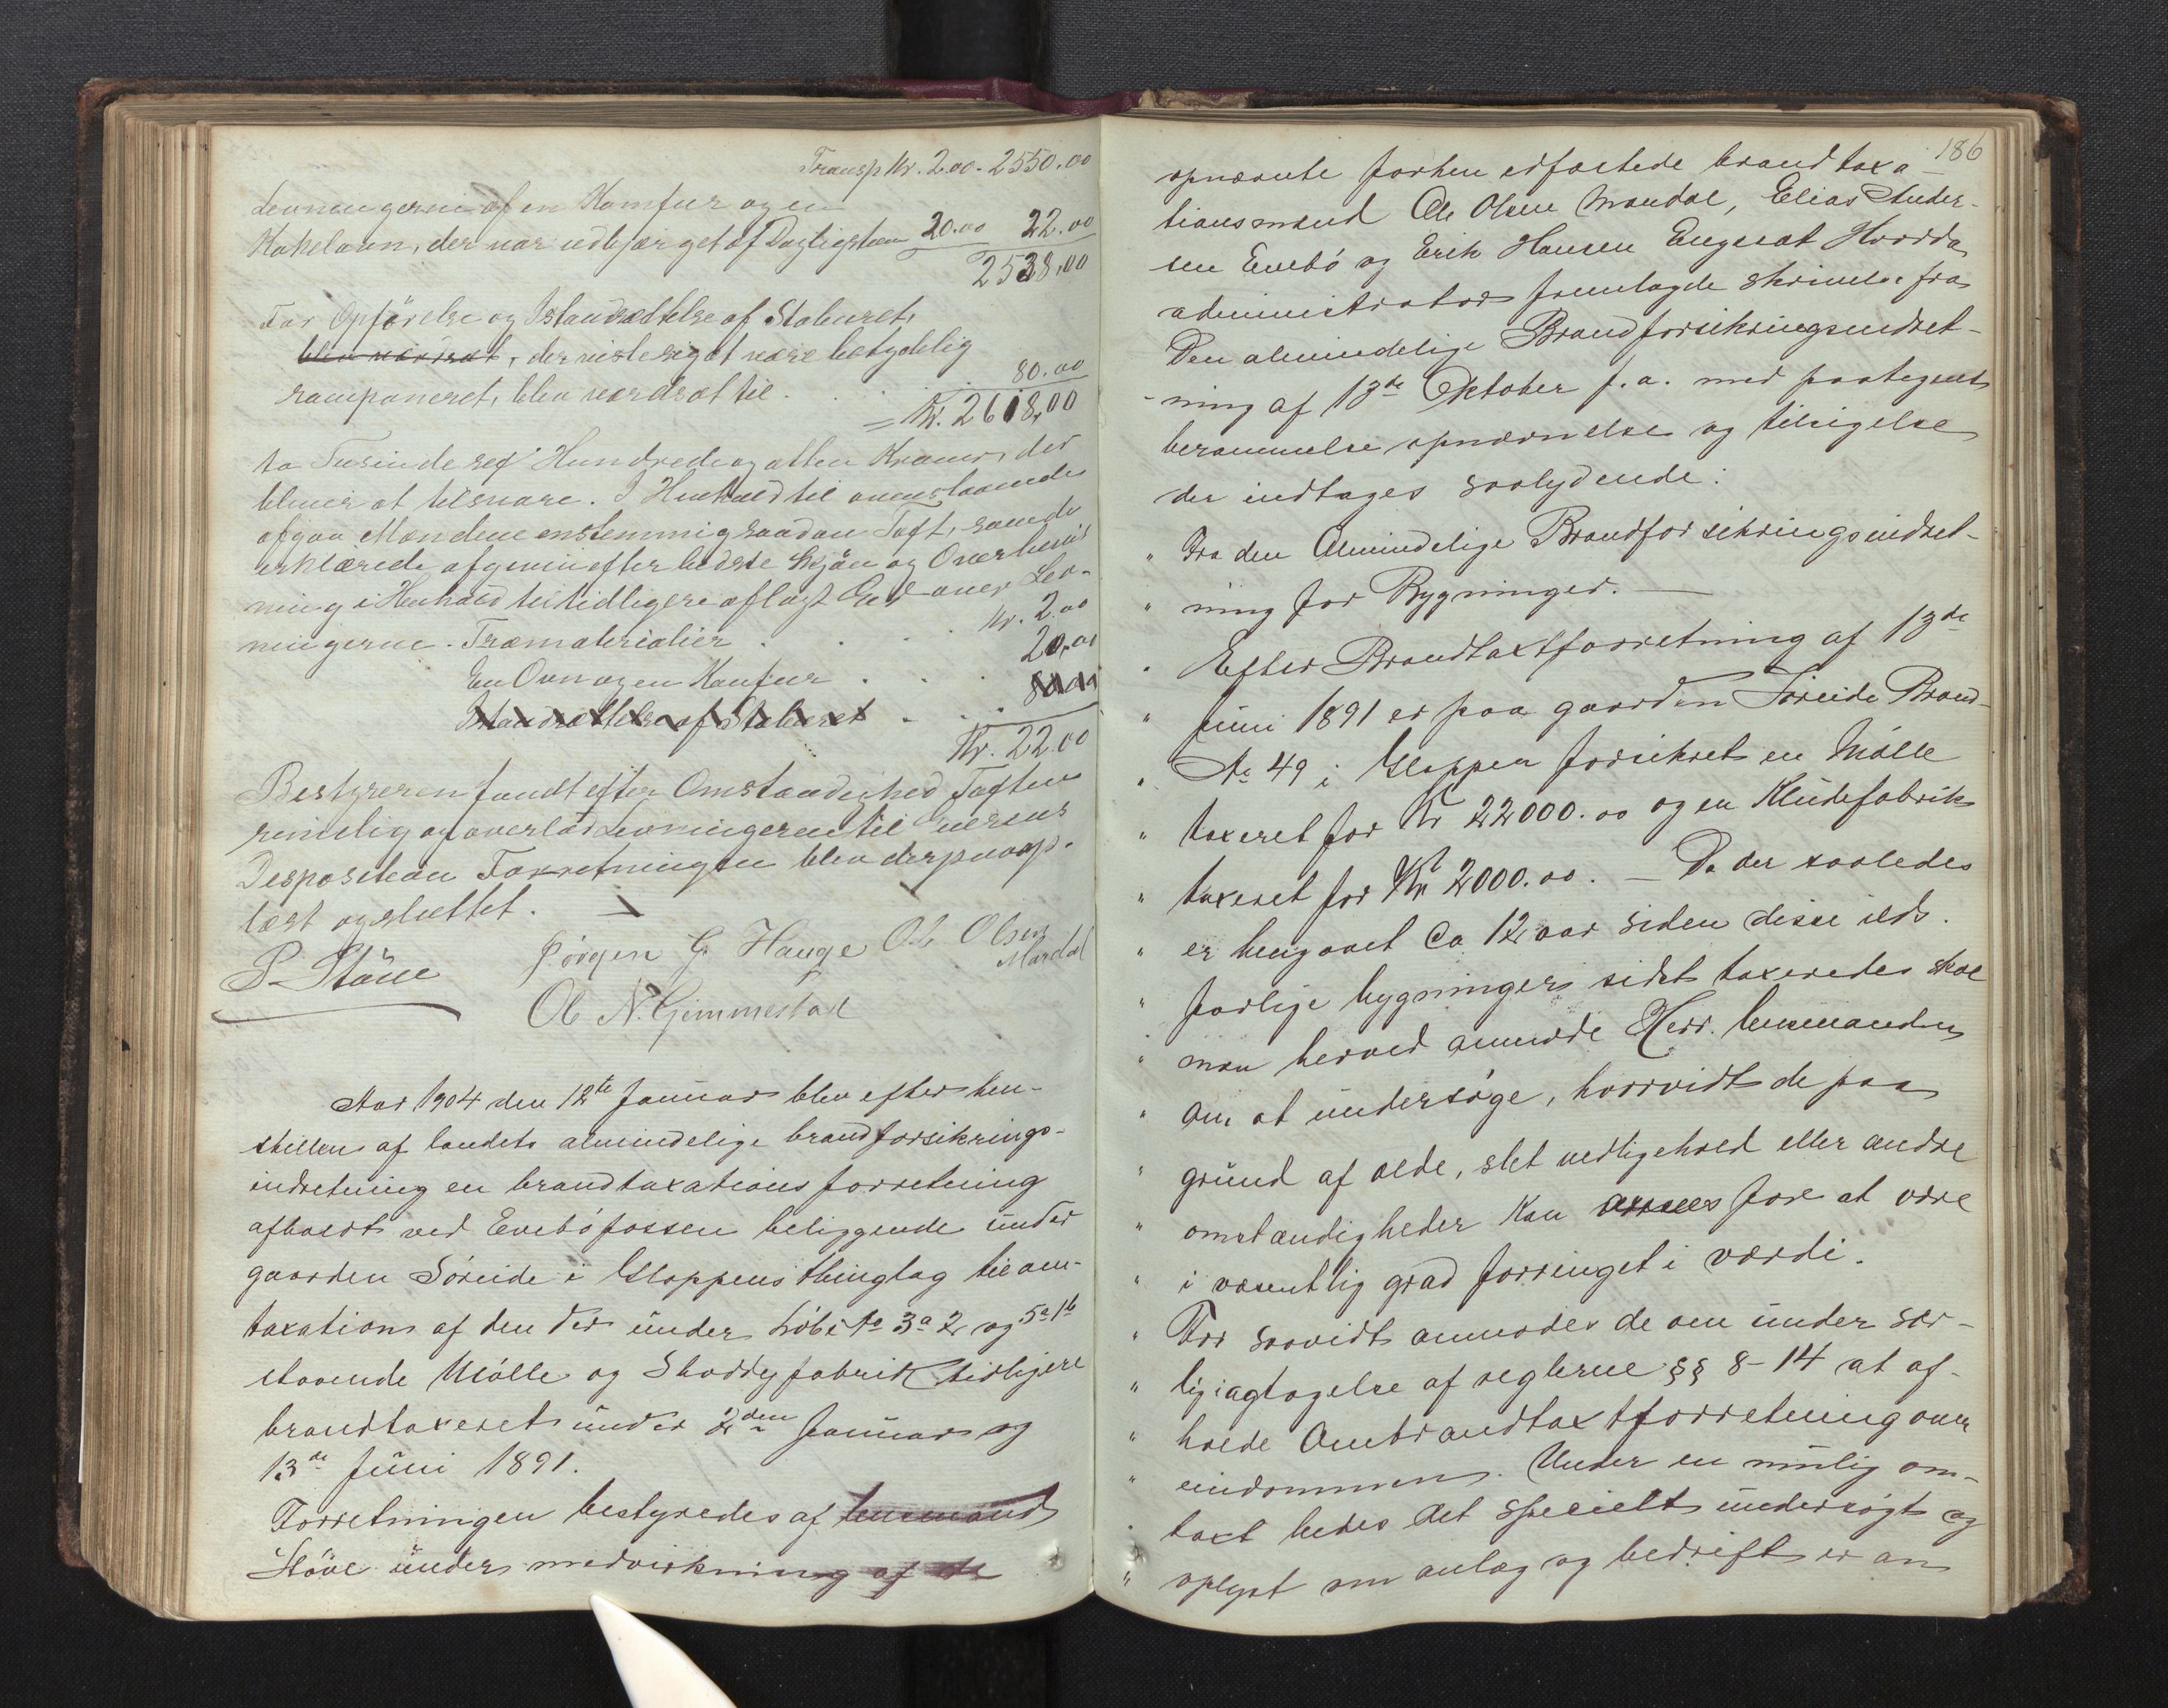 Transp Kr. 2.00 - 2550.00
Levningerne af en Komfur og en
Kakelovn, der var udbjærget af Dagligstuen 20.00 22.00
2538,00
For Opförelse og Istandsættelse af Staburet,
blev værdsat, der viste sig at være betydelig
ramponeret, blev værdsat til . . . 80.00
= Kr. 2618,00
to Tusinde sex Hundrede og atten Kroner, der
bliver at tilsvare. I Henhold til ovenstaaende
afgav Mændene enstemmig saadan Taxt, som de
erklærede afgiven efter bedste Skjön og Overbevis
ning i Henhold til tidligere aflagt Ed over Lev-
ningerne. Træmaterialier . . . Kr. 2.00
En Ovn og en Komfur . . . 20,00
Istandsættelse af Staburet . . . 80,00
Kr. 22.00
Bestyreren fandt efter Omstændighed Taxten
rimelig og overlod Levningerne til Eierens
Desposition Forretningen blev derpaa op-
læst og sluttet.
P. Stöve Jörgen G. Hauge Ole Olsen
Mardal
Ole N. Gimmestad
Aar 1904 den 12te Januar blev efter hen-
stillen af landets almindelige brandforsikrings-
indretning en brandtaxations forretning
afholdt ved Evebófossen beliggende under
gaarden Sóreide i Gloppens thinglag til om-
taxation af den der under Löbe No 3a 2 og 5a 1b
staaende Mólle og Shoddyfabrik tidligere
brandtaxeret under 2den Januar og
13de Juni 1891.
Forretningen bestyredes af lensmand
Stöve under medvirkning af de
186
opnævnte forhen edfæstede brandtaxa-
tionsmænd Ole Olsen Mardal, Elias Ander-
sen Evebó og Erik Hansen Engeset Hvorda
administrator fremlagde skrivelse fra
Den almindelige Brandforsikringsindret-
ning af 13de Oktober f.a. med paategnet
berammelse opnævnelse og tilsigelse
der indtages saalydende:
" Fra den Almindelige Brandforsikringsindret-
" ning for Bygninger. —
" Efter Brandtaxtforretning af 13de
" Juni 1891 er paa gaarden Sóreide Brand-
" No 49 i Gloppen forsikret en Mólle
" taxeret for Kr 22000.00 og en Kludefabrik
" taxeret for Kr 2000.00. — Da der saaledes
" er hengaaet Ca 12 aar siden disse ilds-
" farlige bygninger sidst taxeredes skal
" man herved anmode Herr. lensmanden
" om at undersóge, hvorvidt de paa
" grund af ælde, slet vedligehold eller andre
" omstændigheder kan ansees fore at være
" i væsentlig grad forringet i værdi.
" For saavidt anmodes de om under sær-
" lig iagtagelse af reglerne §§ 8-14 at af-
" holde Ombrandtaxtforretning over
" eiendommen. Under en mulig om-
" taxt bedes det specielt undersógt og
" oplyst om anlæg og bedrift er an